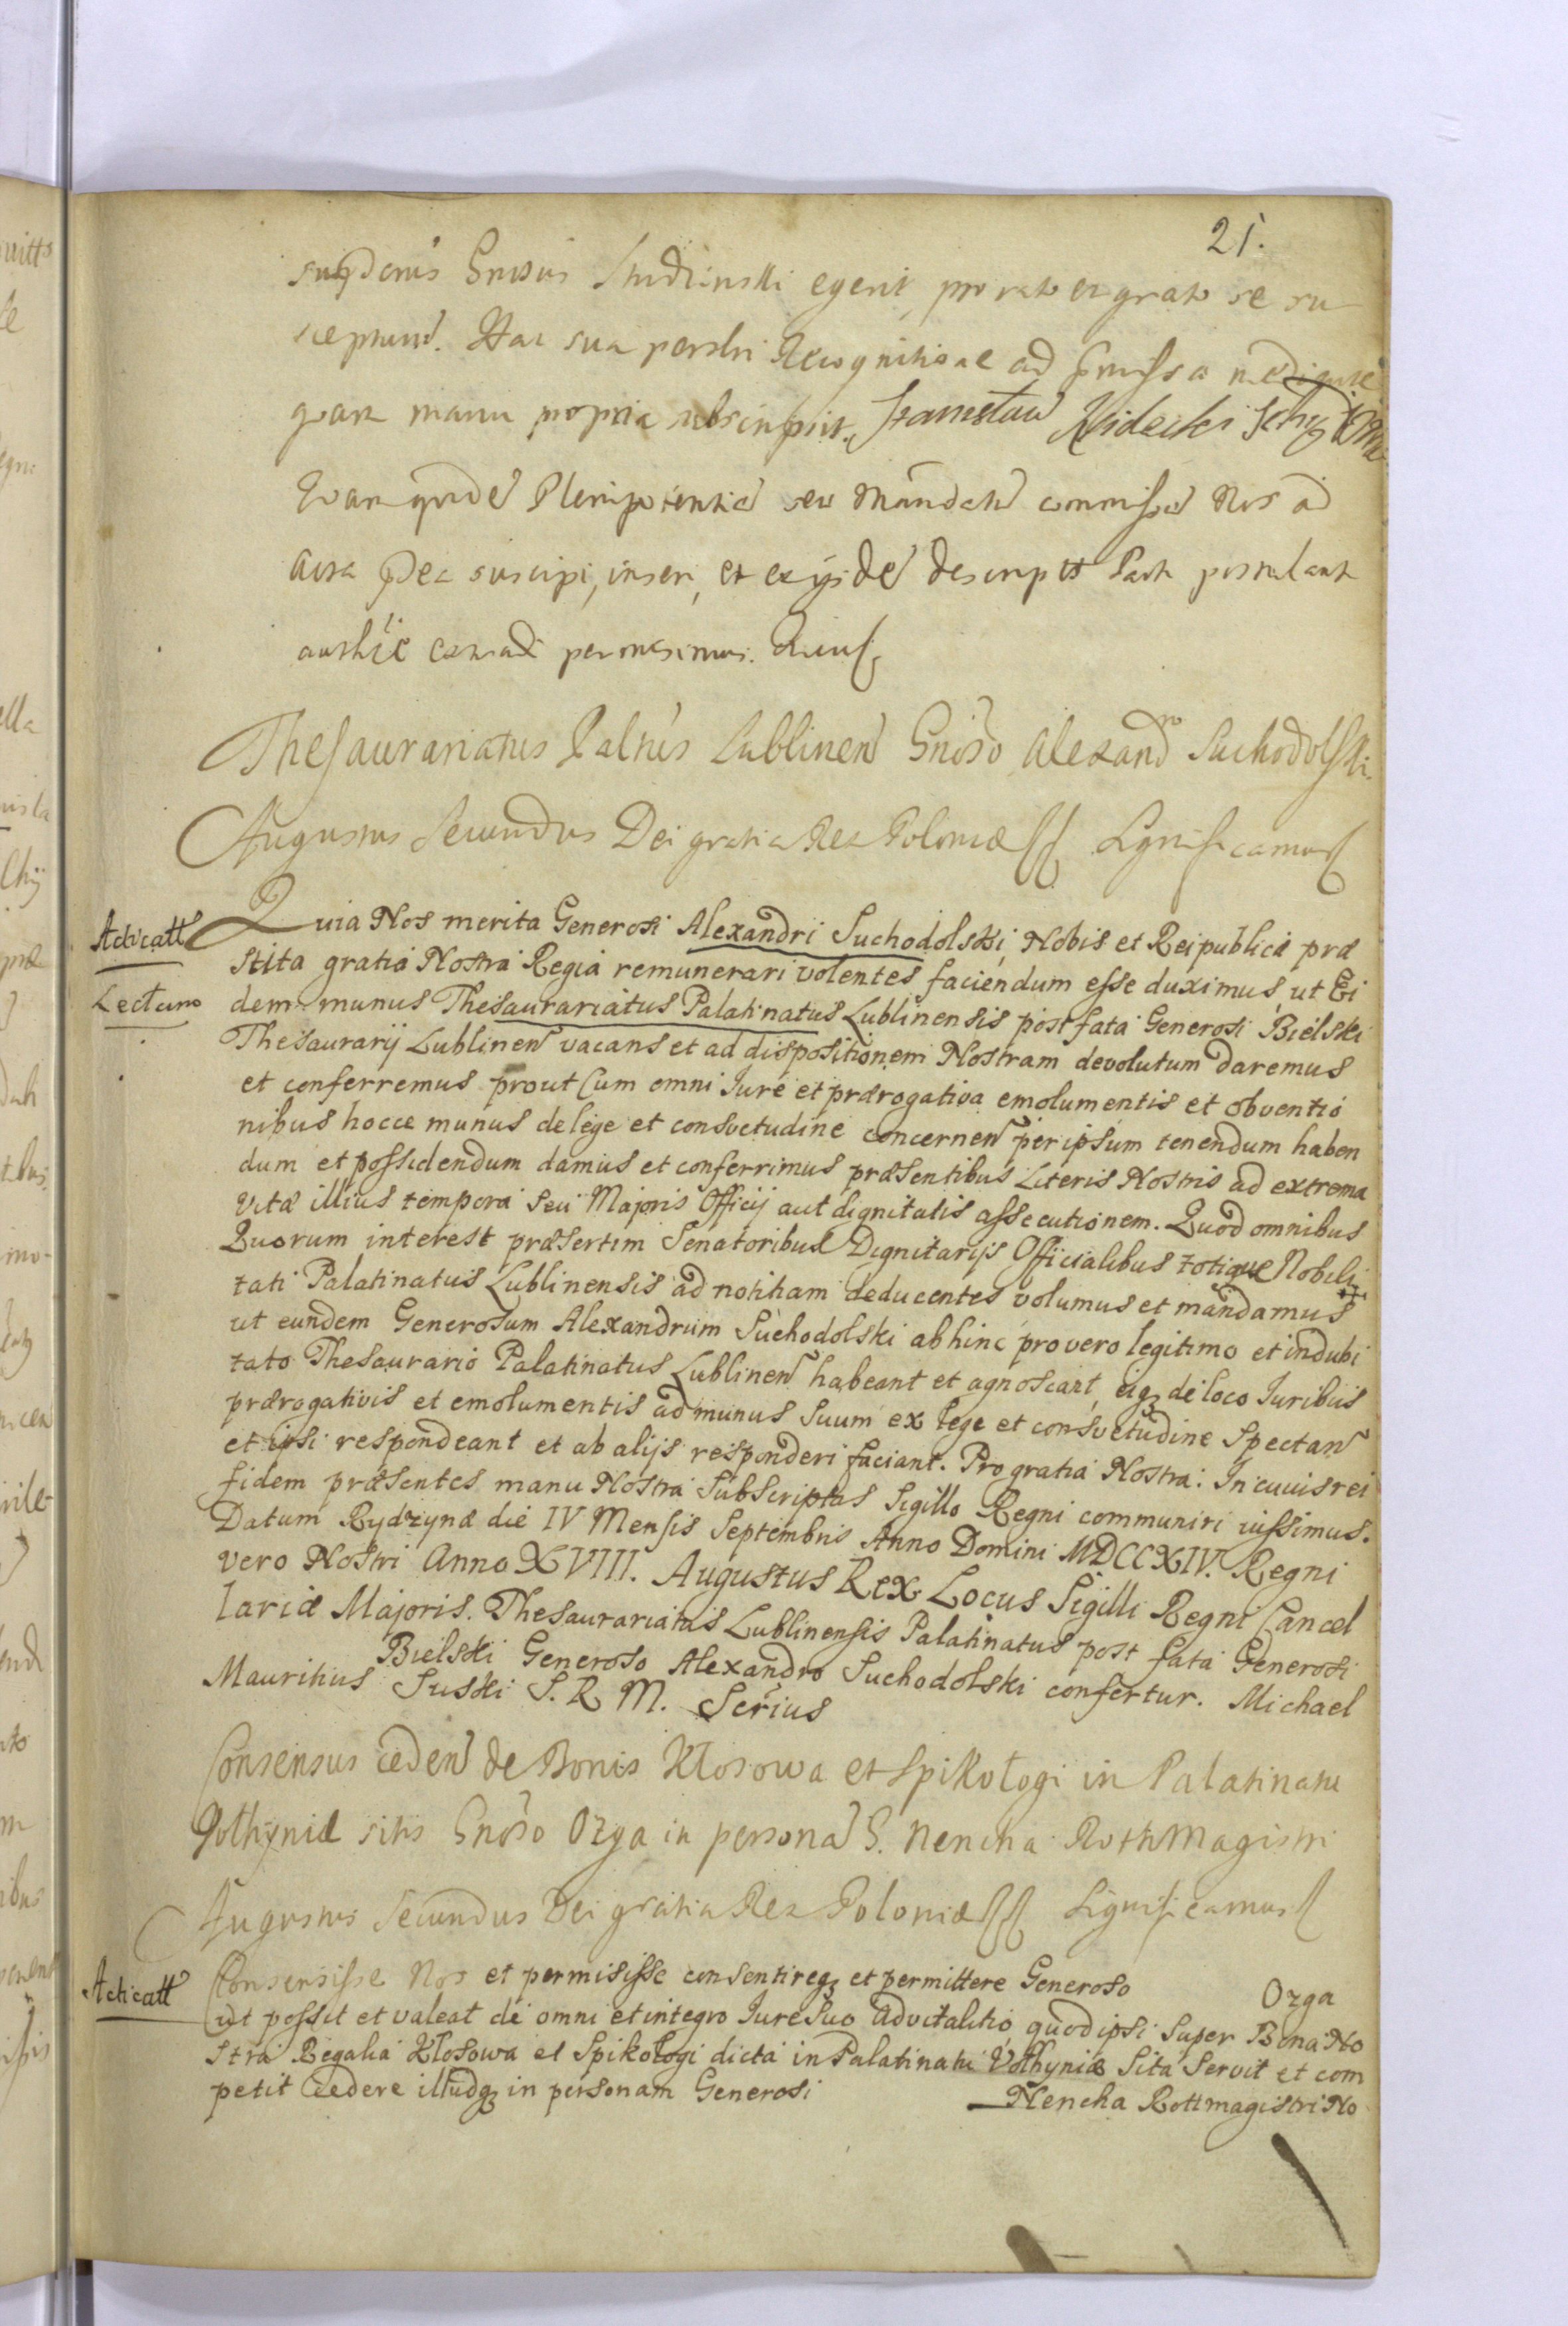 21.
supdcris Gnosus Studzinski egerit, pro rato et grato se su
scepturũ. Hac sua persli Recognitione ad Præmissa mediante
quam manu propria subscripsit. Stanisław Nidecki
Quam qūdē Plenipotentiā seu Mandatū commissū Nos ad
acta pñtia suscipi, inseri, et ex ijsdē descriptt Parti postulanti
authēē extradi permisimus. Cuius
Thesaurariatus Paltñus Lublinen Gnõso Alexandro Suchodolski.
Augustus Secundus Dei gratia Rex Poloniæ Significamus
Acticatt Quia Nos merita Generosi Alexandri Suchodolski, Nobis et Reipublicæ præ
Lectum
stita gratiâ Nostrâ Regiâ remunerari volentes faciendum esse duximus, ut Ei
dem munus Thesaurariatus Palatinatus Lublinensis post fata Generosi Bielski
Thesaurarij Lublinen vacans et ad dispositionem Nostram devolutum daremus
et conferremus prout Cum omni Iure et prærogativa emolumentis et obventio
nibus hocce munus de lege et consvetudine concernen per ipsum tenendum haben
dum et possidendum damus et conferrimus præsentibus Literis Nostris ad extrema
vitæ illius tempora seu Majoris Officij aut dignitatis assecutionem. Quod omnibus
Quorum interest præsertim Senatoribus Dignitarijs Officialibus totique Nobili
tati Palatinatus Lublinensis ad notitiam deducentes volumus et mandamus
ut eundem Generosum Alexandrum Suchodolski abhinc pro vero legitimo et indubi
tato Thesaurario Palatinatus Lublinen habeant et agnoscant, eiq; de loco Iuribus
prærogativis et emolumentis ad munus suum ex lege et consvetudine Spectan
et ipsi respondeant et ab alijs responderi faciant. Pro gratia Nostra. In cuius rei
fidem præsentes manu Nostra Subscriptas Sigillo Regni communiri iussimus.
Datum Rydzynæ die IV Mensis Septembris Anno Domini MDCCXIV. Regni
vero Nostri Anno XVIII. Augustus Rex Locus Sigilli Regni Cancel
lariæ Majoris. Thesaurariatus Lublinensis Palatinatus post fata Generosi
Bielski Generoso Alexandro Suchodolski confertur. Michael
Mauritius Suski S. R. M. Scrius
Consensus ceden de Bonis Kłosowa et Spikołogi in Palatinatu
Volhyniæ sitis Gnõso Ozga in personã G. Nencha RothMagistri
Augustus Secundus Dei gratia Rex Poloniæ Significamus
Acticatt Consensisse Nos et permisisse consentireq; et permittere Generoso Ozga
ut possit et valeat de omni et integro Iure Suo advitalitio, quod ipsi super Bona No
stra Regalia Kłosowa et Spikołogi dicta in Palatinatu Volhyniæ Sita Servit et com
petit Cedere illudq; in personam Generosi Nencha Rottmagistri No